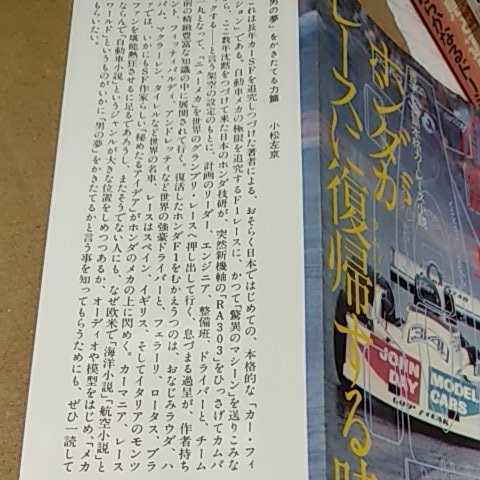 男の夢」をかきたてる力篇　小松左京
れは長年カーSFを追究しつづけた著者による、おそらく日本ではじめての、本格的な、「カー・フィ
ション」である。自動車メカの極限を追究するF1レースに、かつて"驚異のマシーン"を送りこみな
がら、ここ数年沈黙をつづけて来た日本のホンダ技研が、突然新機軸の「RA303」をひっさげてカムバ
ックする——と言う架空の設定のもとに、計画のリーダー、エンジニア、整備班、ドライバーと、チーム
丸となって、「ニューメカ」を世界のグランプリ・レースへ押し出して行く、息づまる過程が、作者持ち
前の精緻豊富な知識の中に展開されて行く。復活したホンダF1をむかえうつのは、おなじみラウダ、ハ
ント、フィッティパルディ、アンドレッティなど世界の強豪ドライバーと、フェラーリ、ロータス、ブラ
バム、マクラーレン、タイレルなど世界の名車、レースはスペイン、イギリス、そしてイタリアのモンツ
では、いかにもSF作家らしい「秘めたるアイデア」がホンダのメカの上に閃めく。カーマニア、レース
ファンを堪能熱狂させるに足るであろうし、またそうでない人にも、なぜ欧米で「海洋小説」「航空小説」と
ならんで「自動車小説」というジャンルが大きな位置をしめつつあるか、オーディオや模型をはじめ、「メカ
ワールド」というものがいかに「男の夢」をかきたてるかと言う事を知ってもらうためにも、ぜひ一読して
もらいたい。
ホンダが
レースに復帰する時
JOHN DAY
MODEL CARS